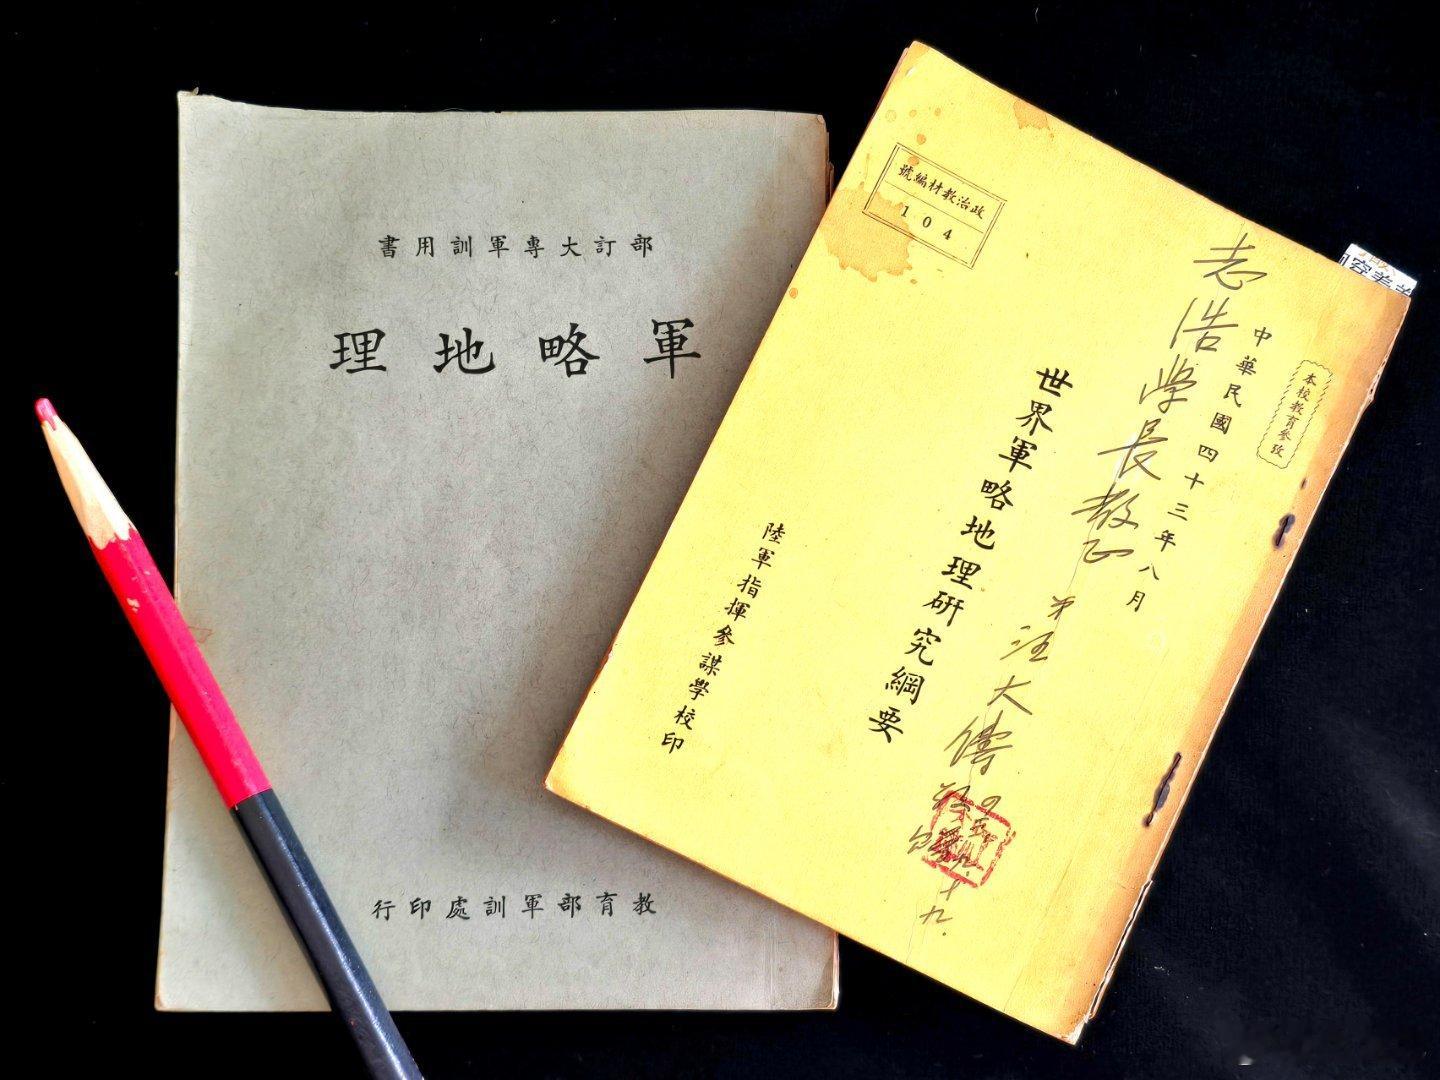 部訂大專軍訓用書
軍略地理
教育部軍訓處印行
政治教材編號
104
本校教育參攷
中華民國四十三年八月
世界軍略地理研究綱要
陸軍指揮參謀學校印
志浩學長教正
弟汪大鑄